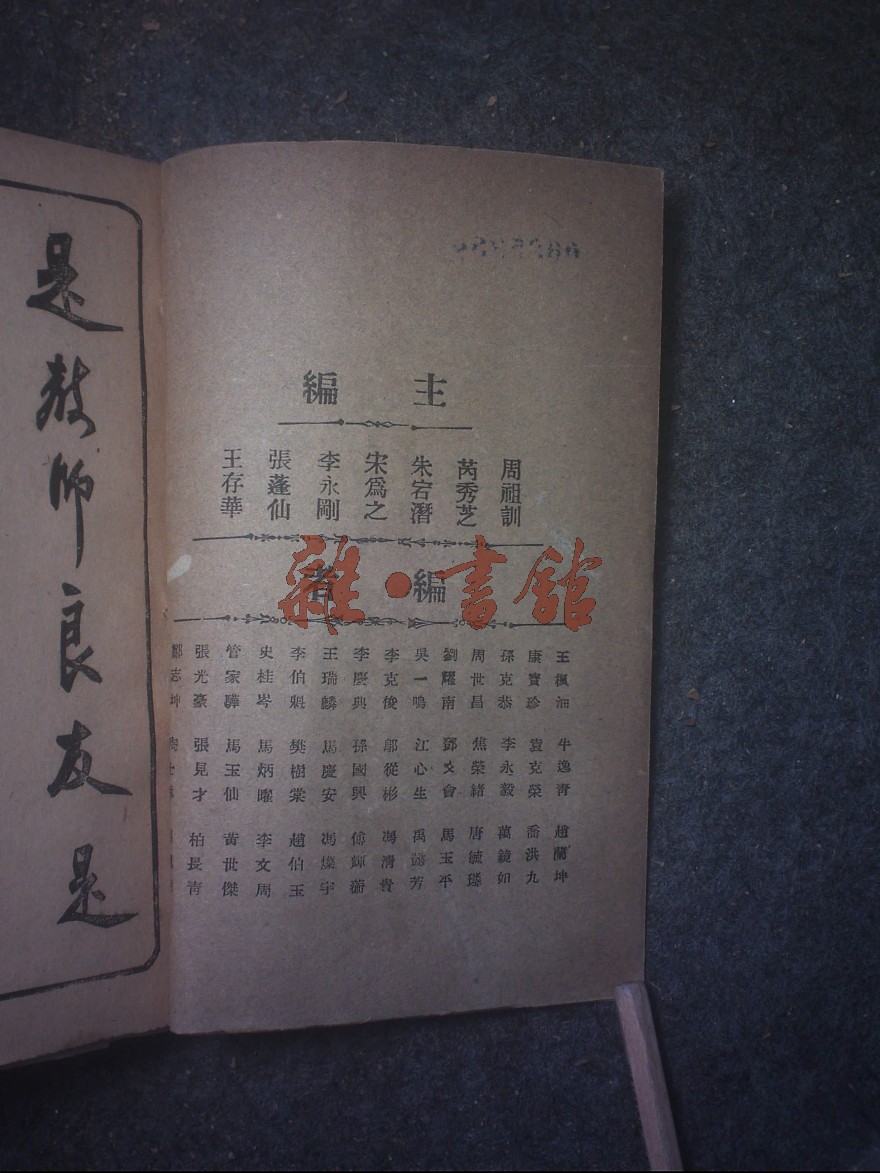 主編
周祖訓
芮秀芝
朱宕潛
宋爲之
李永剛
張蓬仙
王存華
編者
王楓㳓
康寶珍
孫克恭
周世昌
劉耀南
吳一鳴
李克俊
李慶典
王瑞麟
李伯魁
史桂岑
管家驊
張光豪
志坤
牛逸靑
袁克榮
李永毅
焦榮緒
鄧文會
江心生
鄔從彬
孫國興
馬慶安
樊樹棠
馬炳曜
馬玉仙
張見才
趙蘭坤
喬洪九
萬鏡如
唐毓璘
馬玉平
禹懿芳
馮濟貴
馮燦宇
趙伯玉
李文周
黃世傑
柏長靑
是教師良友是
雜·書館